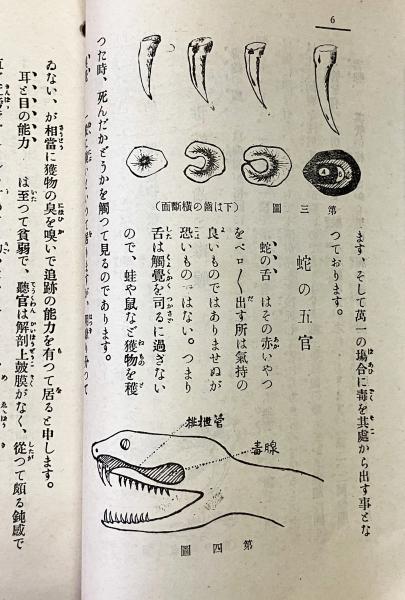 6
第三圖
(下は齒の横斷面)
ます、そして萬一の塲合に毒を其處から出す事とな
つております。
蛇の五官
蛇の舌 はその赤いやつ
をペロ〱出す所は氣持の
良いものではありませぬが
恐いものではない。つまり
舌は觸覺を司るに過ぎない
ので、蛙や鼠など獲物を獲
つた時、死んだかどうかを觸つて見るのであります。
排泄管
毒腺
第四圖
ゐない、が相當に獲物の臭を嗅いで追跡の能力を有つて居ると申します。
耳と目の能力 は至つて貧弱で、聽官は解剖上鼓膜がなく、從つて頗る鈍感で